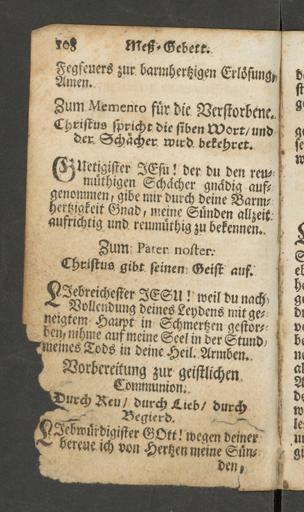 108 Meß-Gebett.
Fegfeuers zur barmhertzigen Erlösung,
Amen.
Zum Memento für die Verstorbene.
Christus spricht die siben Wort/ und
der Schächer wird bekehret.
GUetigister JEsu! der du den reu-
müthigen Schächer gnädig auf-
genommen, gibe mir durch deine Barm-
hertzigkeit Gnad, meine Sünden allzeit
aufrichtig und reumüthig zu bekennen.
Zum Pater noster.
Christus gibt seinen Geist auf.
LIebreichester JESU! weil du nach
Vollendung deines Leydens mit ge-
neigtem Haupt in Schmertzen gestor-
ben, nihme auf meine Seel in der Stund
meines Tods in deine Heil. Armben.
Vorbereitung zur geistlichen
Communion.
Durch Reu/ durch Lieb/ durch
Begierd.
LIebwürdigister GOtt! wegen deiner
bereue ich von Hertzen meine Sün-
den,